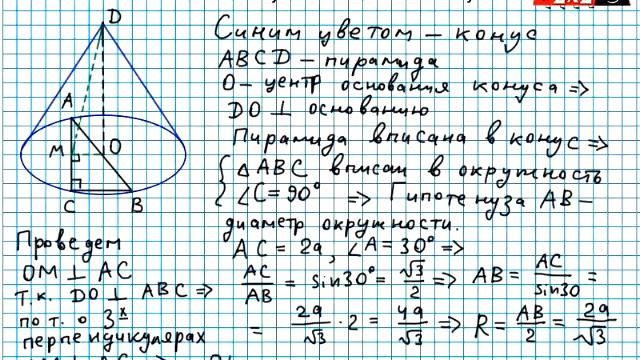 D
A
O
M
C
B
Синим цветом – конус
ABCD – пирамида
O – центр основания конуса ⇒
DO ⊥ основанию
Пирамида вписана в конус ⇒
{ △ABC вписан в окружность
∠C = 90° ⇒ Гипотенуза AB –
диаметр окружности.
AC = 2a, ∠A = 30° ⇒
AC/AB = sin30° = √3/2 ⇒ AB = AC/sin30 =
= 2a/√3 · 2 = 4a/√3 ⇒ R = AB/2 = 2a/√3
Проведем
OM ⊥ AC
т.к. DO ⊥ ABC ⇒
по т. о 3х
перпендикулярах